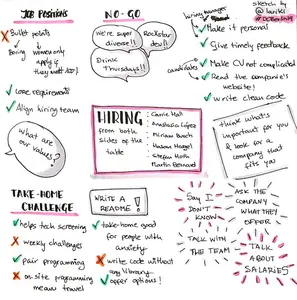 JOB POSITIONS
Bullet points
Boring
women only
apply if
they meet 100%
Core requirements
Align hiring team
What are
our values?
NO-GO
We're super
diverse!!
Rockstar
dev!!
Drink
Thursdays!!
hiring manager
Make it personal
Give timely feedback
candidates
Make CV not complicated
Read the company's
website!
write clean code
sketch by
HIRING
from both
sides of the
table
Carrie Hall
Anastasia López
Miriam Busch
Stefan Hoth
Martin Bernard
think what's
important for you
& look for a
company that
fits you
TAKE-HOME
CHALLENGE
helps tech screening
weekly challenges
pair programming
on-site programming
mean travel
WRITE A
README!
take-home good
for people with
anxiety
write code without
any library
offer options!
Say I
DON'T
KNOW
ASK THE
COMPANY
WHAT THEY
OFFER
TALK WITH
THE TEAM
TALK
ABOUT
SALARIES